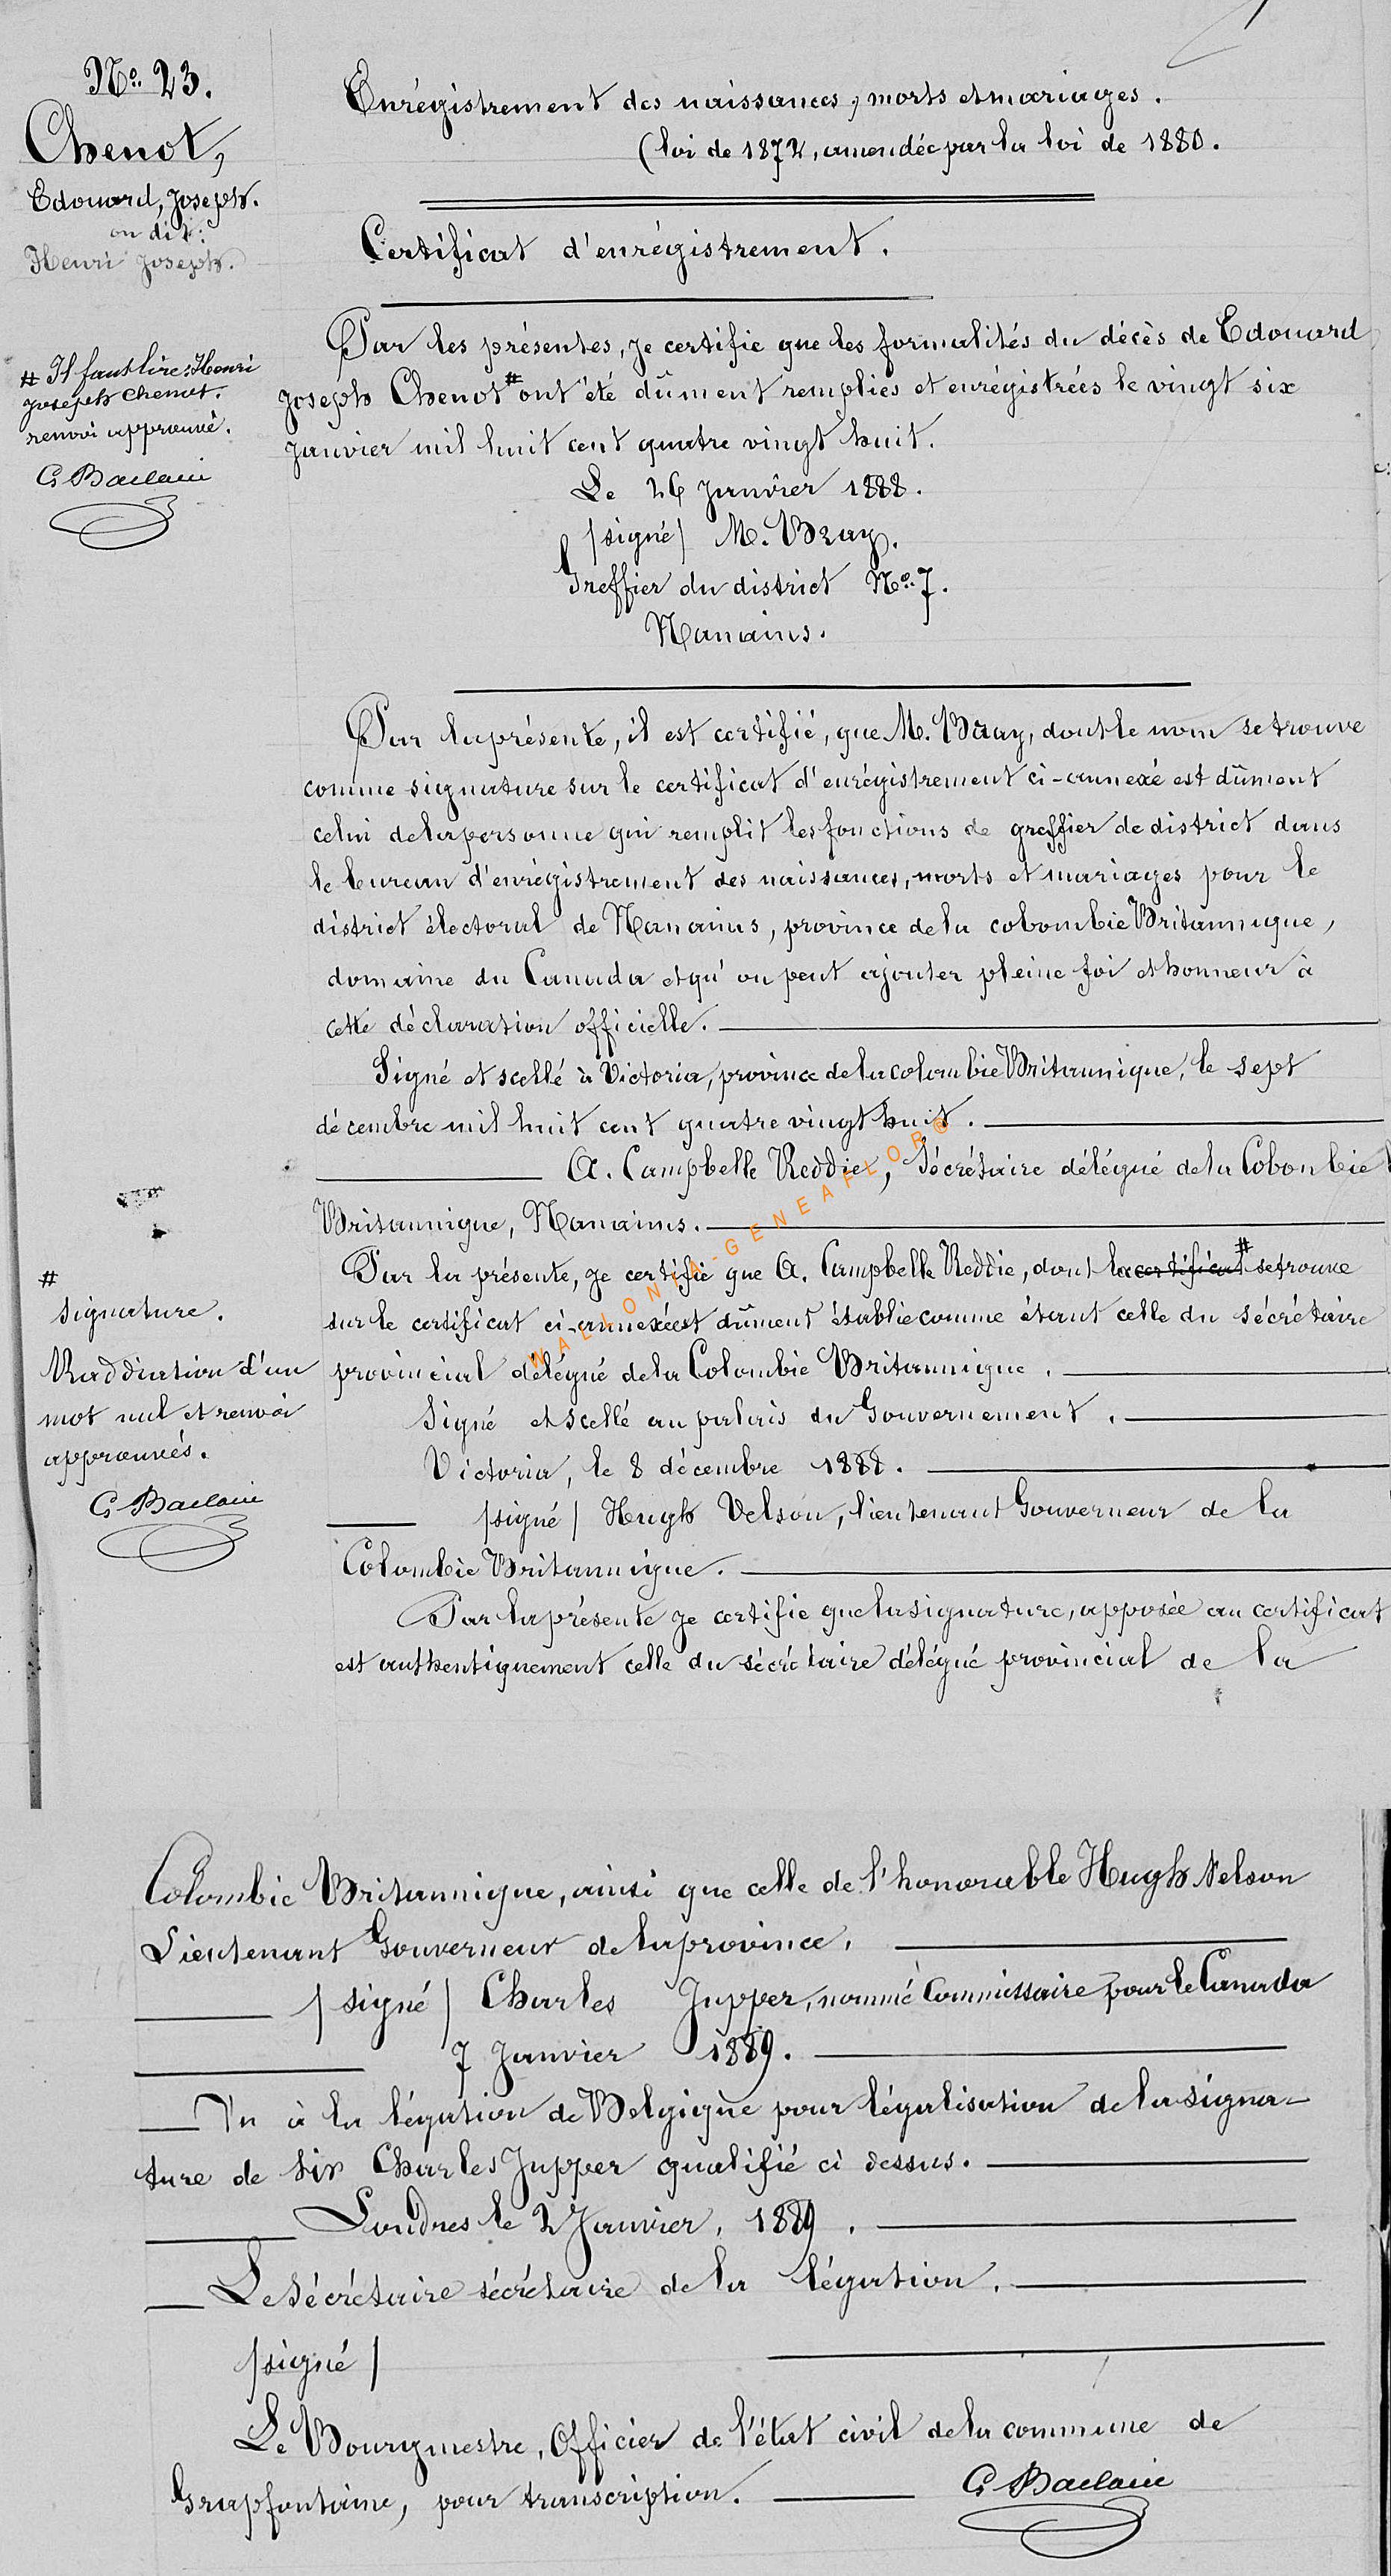 No. 23.
Chenot,
Edouard, Joseph.
on dit:
Henri Joseph.
# Il faut lire: Henri
Joseph Chenot.
renvoi approuvé.
G Baclain
Enrégistrement des naissances, morts et mariages.
(loi de 1872, amendée par la loi de 1880.
Certificat d'enrégistrement.
Par les présentes, je certifie que les formalités du décès de Edouard
Joseph Chenot # ont été dûment remplies et enrégistrées le vingt six
Janvier mil huit cent quatre vingt huit.
Le 26 Janvier 1888.
/signé/ M. Bray.
Greffier du district No. 7.
Nanaims.
Par la présente, il est certifié, que M. Bray, dont le nom se trouve
comme signature sur le certificat d'enrégistrement ci-annexé est dûment
celui de la personne qui remplit les fonctions de greffier de district dans
le bureau d'enrégistrement des naissances, morts et mariages pour le
district électoral de Nanaims, province de la colombie Britannique,
domaine du Canada et qu'on peut ajouter pleine foi et honneur à
cette déclaration officielle.
Signé et scellé à Victoria, province de la colombie Britannique, le sept
décembre mil huit cent quatre vingt huit.
A. Campbelle Reddie, Sécrétaire délégué de la Colombie
Britannique, Nanaims.
Par la présente, je certifie que A. Campbelle Reddie, dont la certificat # se trouve
sur le certificat ci-annexée est dûment établie comme étant celle du sécrétaire
provincial délégué de la Colombie Britannique.
Signé et scellé au palais du Gouvernement.
Victoria, le 8 décembre 1888.
/signé/ Hugh Velson, lieutenant Gouverneur de la
Colombie Britannique.
Par la présente je certifie que la signature, apposée au certificat
est authentiquement celle du sécrétaire délégué provincial de la
#
signature.
Raddiation d'un
mot nul et renvoi
approuvés.
G Baclain
WALLONIA-GENEAFLOR®
Colombie Britannique, ainsi que celle de l'honorable Hugh Nelson
Lieutenant Gouverneur de la province.
/signé/ Charles Jupper, nommé Commissaire pour le Canada
7 Janvier 1889.
Vu à la légation de Belgique pour légalisation de la signa-
ture de Sir Charles Jupper qualifié ci dessus.
Londres le 2 Janvier, 1889.
Le Sécrétaire sécrétaire de la légation.
/signé/
Le Bourgmestre, Officier de l'état civil de la commune de
Grapfontaine, pour transcription.
G Baclain